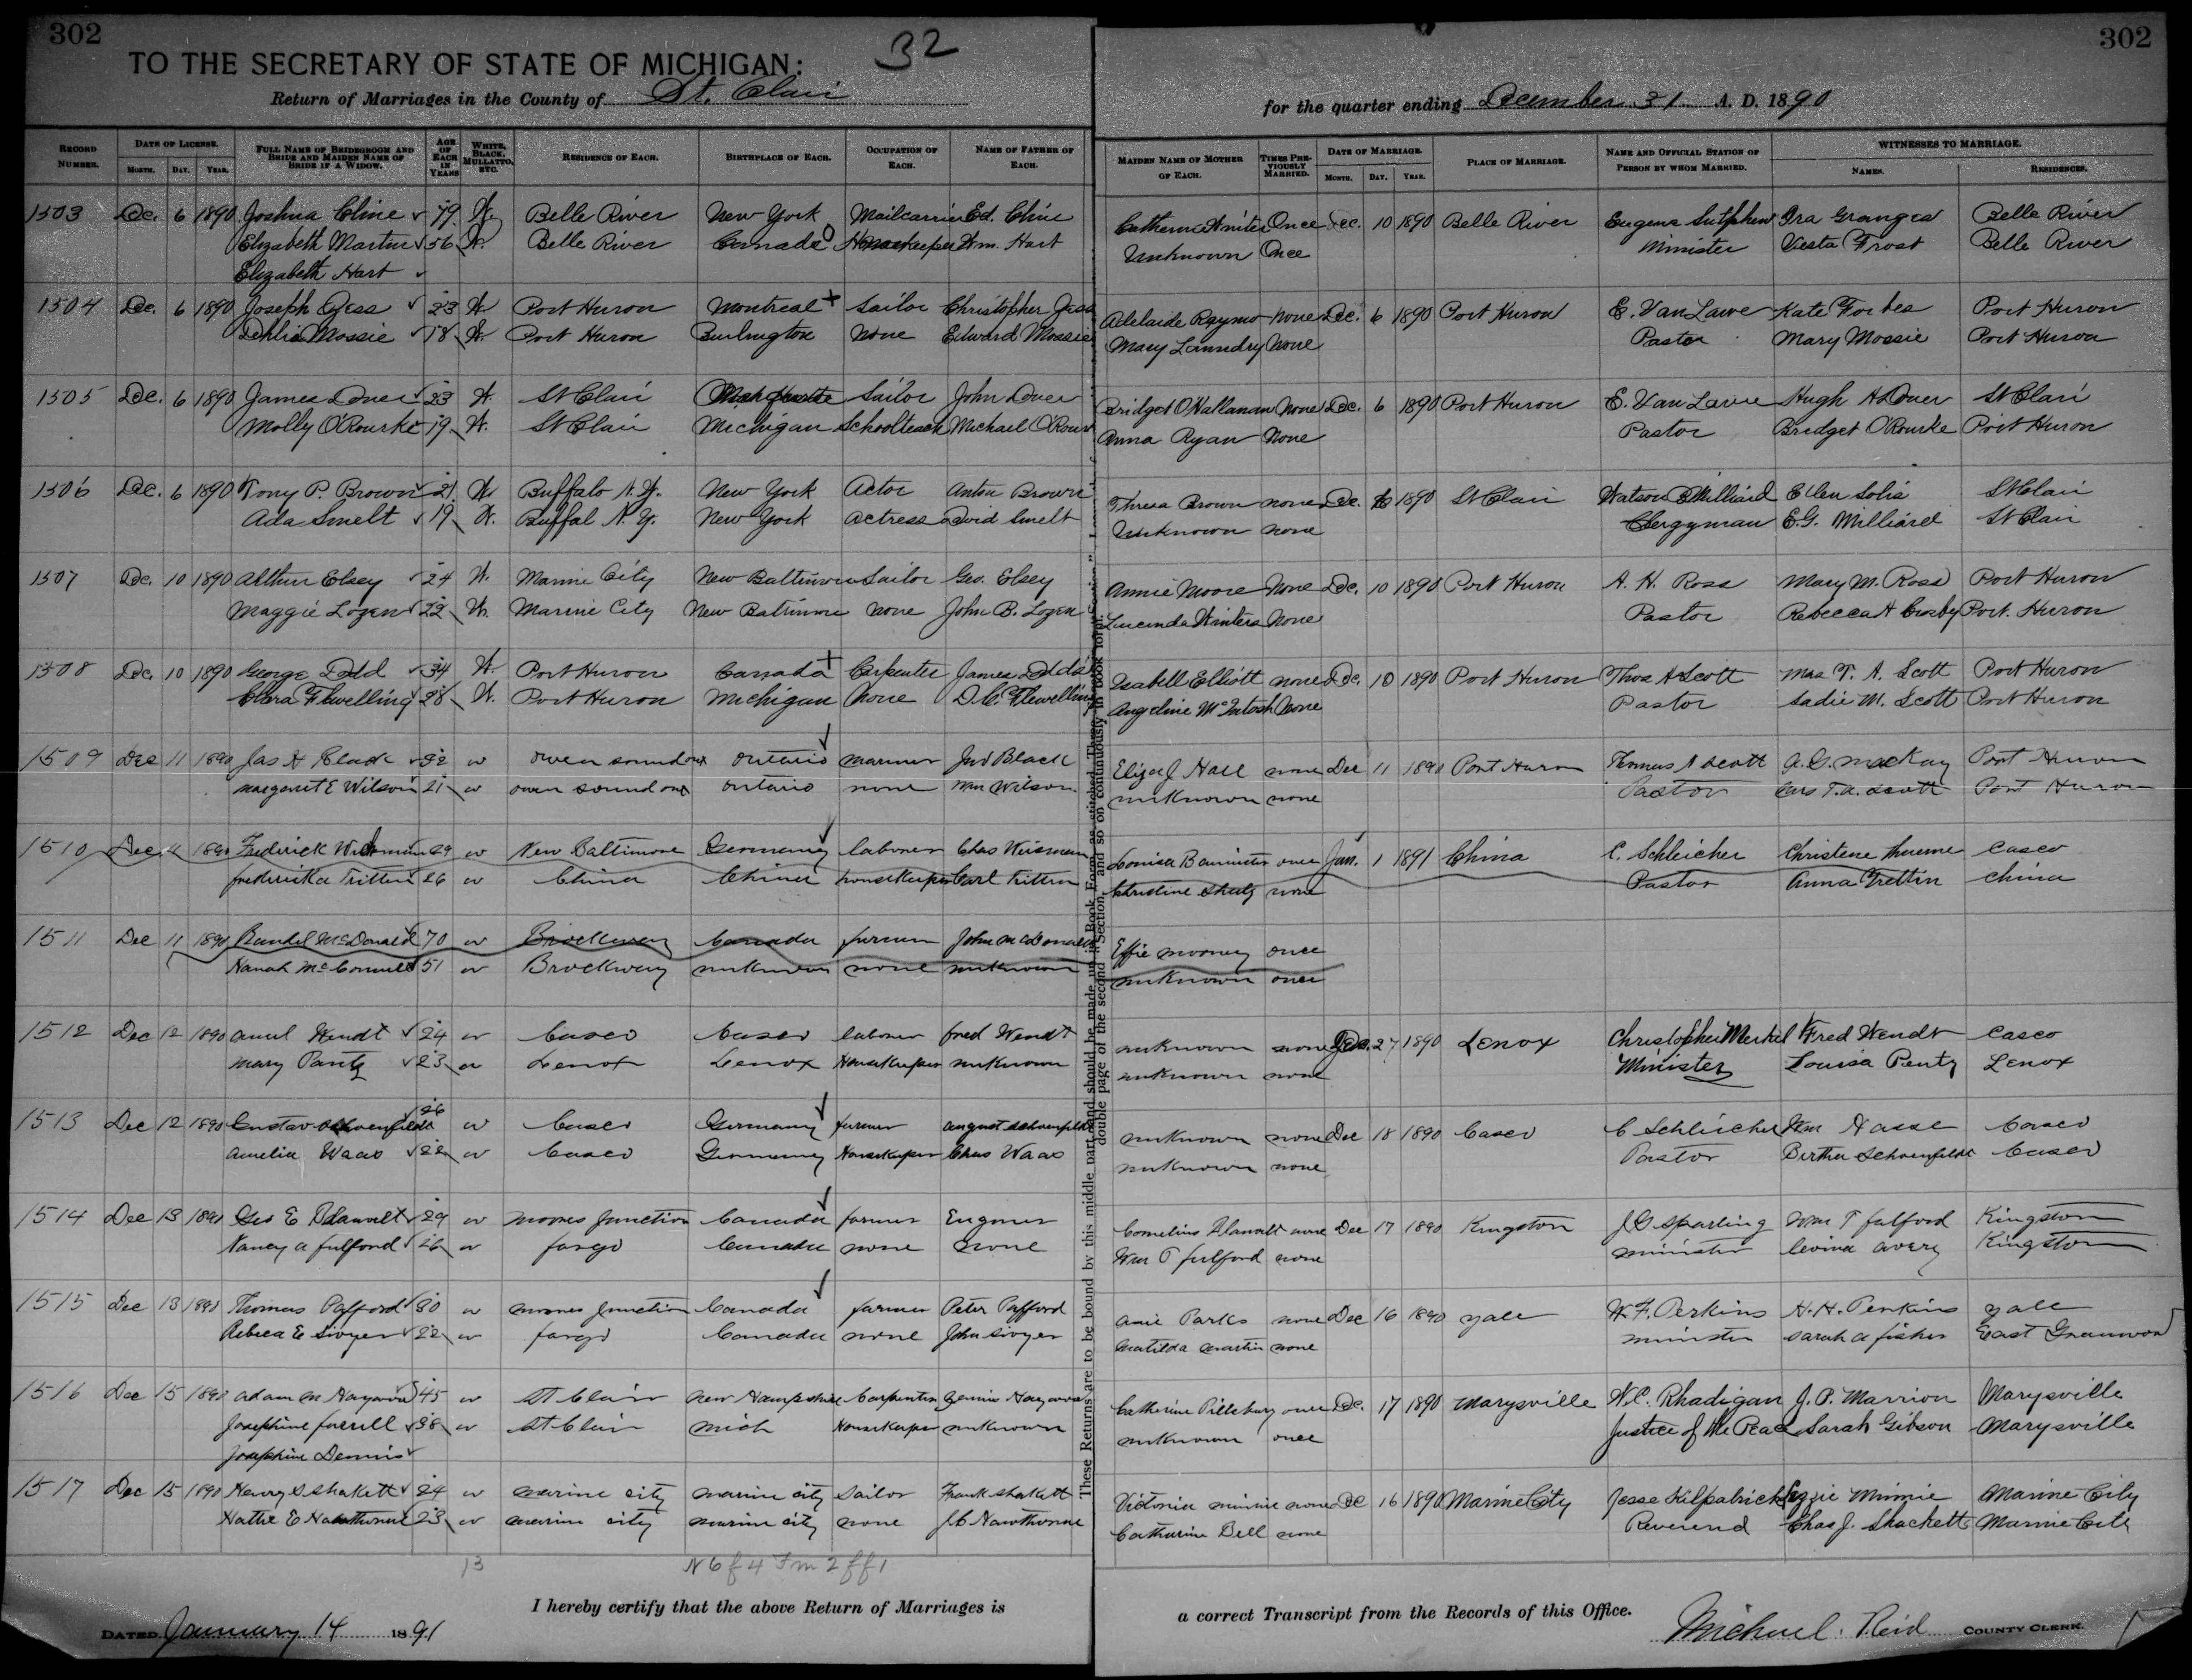 302
302
TO THE SECRETARY OF STATE OF MICHIGAN:
32
Return of Marriages in the County of St. Clair
for the quarter ending December 31 A. D. 1890
RECORD NUMBER. DATE OF LICENSE. MONTH. DAY. YEAR. FULL NAME OF BRIDEGROOM AND BRIDE AND MAIDEN NAME OF BRIDE IF A WIDOW. AGE OF EACH IN YEARS WHITE, BLACK, MULLATTO, ETC. RESIDENCE OF EACH. BIRTHPLACE OF EACH. OCCUPATION OF EACH. NAME OF FATHER OF EACH. MAIDEN NAME OF MOTHER OF EACH. TIMES PREVIOUSLY MARRIED. DATE OF MARRIAGE. MONTH. DAY. YEAR. PLACE OF MARRIAGE. NAME AND OFFICIAL STATION OF PERSON BY WHOM MARRIED. WITNESSES TO MARRIAGE. NAMES. RESIDENCES.
1503 Dec. 6 1890 Joshua Cline 79 W. Belle River New York Mailcarrier Ed. Cline Catherine Once Dec. 10 1890 Belle River Eugene Sutphen Ira Granger Belle River
Elizabeth Martin 56 W. Belle River Canada Housekeeper Wm. Hart Unknown Once Minister Vesta Frost Belle River
Elizabeth Hart
1504 Dec. 6 1890 Joseph Jess 23 W. Port Huron Montreal Sailor Christopher Jess Adelaide Raymo None Dec. 6 1890 Port Huron E. Van Lawe Kate Forbes Port Huron
Dehlia Mossie 18 W. Port Huron Burlington None Edward Mossie Mary Laundry None Pastor Mary Mossie Port Huron
1505 Dec. 6 1890 James Doner 23 W. St Clair Sailor John Doner Bridget O'Hallanan None Dec. 6 1890 Port Huron E. Van Lawe Hugh H Doner St Clair
Molly O'Rourke 19 W. St Clair Michigan Schoolteach Michael O'Rour Anna Ryan None Pastor Bridget O'Rourke Port Huron
1506 Dec. 6 1890 Tony P. Brown 21 W. Buffalo N.Y. New York Actor Anton Brown Thresa Brown none Dec. 6 1890 St Clair Watson Milliard Ellen Solis St Clair
Ada Smelt 19 W. Buffal N.Y. New York Actress David Smelt Unknown none Clergyman E.G. Milliard St Clair
1507 Dec. 10 1890 Arthur Elsey 24 W. Marine City New Baltimore Sailor Geo. Elsey Annie Moore None Dec. 10 1890 Port Huron A. H. Ross Mary M. Ross Port Huron
Maggie Lozen 22 W. Marine City New Baltimore None John B. Lozen Lucinda Winters None Pastor Rebecca A Crosby Port. Huron
1508 Dec. 10 1890 George Dodd 34 W. Port Huron Canada Carpenter James Dodds Isabell Elliott none Dec. 10 1890 Port Huron Thos A Scott Mrs T. A. Scott Port Huron
Clara Flewelling 28 W. Port Huron Michigan None D.C. Flewelling Angeline McIntosh None Pastor Sadie M. Scott Port Huron
1509 Dec 11 1890 Jas A Black 32 w Owen Sound Ont Ontario mariner Jno Black Eliza J Hall none Dec 11 1890 Port Huron Thomas A Scott A. G. MacKay Port Huron
Margaret E Wilson 21 w Owen Sound Ont Ontario none Wm Wilson unknown none Pastor Mrs T. A. Scott Port Huron
1510 Dec. 11 1890 Frederick 29 w New Baltimore Germany laborer Chas Weisman Louisa once Jan. 1 1891 China C. Schleicher Christene Casco
Frederika Trittin 26 w China China housekeeper Carl Trittin Christine Shultz none Pastor Anna Trettin China
1511 Dec 11 1890 Randel McDonald 70 w Brockway Canada farmer John McDonald Effie Mooney once
Hanah McConnell 51 w Brockway unknown none unknown unknown once
1512 Dec 12 1890 Amil Wendt 24 w Casco Casco laborer Fred Wendt unknown none 27 1890 Lenox Christopher Merkel Fred Wendt Casco
Mary Pantz 23 w Lenox Lenox Housekeeper unknown unknown none Minister Louisa Pentz Lenox
1513 Dec 12 1890 Gustav Schoenfeldt 26 w Casco Germany farmer August Schoenfeldt unknown none Dec 18 1890 Casco C Schleicher Wm Hasse Casco
Amelia Waas 22 w Casco Germany Housekeeper Chas Waas unknown none Pastor Bertha Schoenfeldt Casco
1514 Dec 13 1890 Geo E Blawelt 29 w Moores Junction Canada farmer Cornelius Blawelt none Dec 17 1890 Kingston J G Sparling Wm T Fulford Kingston
Nancy A Fulford 26 w Fargo Canada none none Wm T Fulford none minister Levina Avery Kingston
1515 Dec 13 1890 Thomas Pafford 30 w Moores Junction Canada farmer Peter Pafford Anie Parks none Dec 16 1890 Yale W. F. Perkins H. H. Perkins Yale
Rebeca E Sivyer 22 w Fargo Canada none John Sivyer Matilda Martin none minister Sarah A Fisher East Greenwood
1516 Dec 15 1890 Adam M Hayward 45 w St Clair New Hampshire Carpenter Hayward Catherine Pillsbury once Dec. 17 1890 Marysville W.C. Rhadigan J. P. Marrion Marysville
Josephine Farrill 38 w St Clair Mich Housekeeper unknown unknown once Justice of the Peace Sarah Gibson Marysville
Josephine Dennis
1517 Dec 15 1890 Henry S Shakett 24 w Marine City Marine City Sailor Frank Shakett Victoria Minnie none Dec 16 1890 Marine City Jesse Kilpatrick Lizzie Minnie Marine City
Hattie E Hawthorne 23 w Marine City Marine City none J C Hawthorne Catharine Bell none Reverend Chas J. Shackett Marine City
These Returns are to be bound by this middle part and should be made up in Book Form as stitched. Throw
double page of the second "Section," and so on continuously in book form.
13
N 6 f 4 F m 2 f f 1
I hereby certify that the above Return of Marriages is a correct Transcript from the Records of this Office.
DATED January 14 1891
Michael Reid COUNTY CLERK.